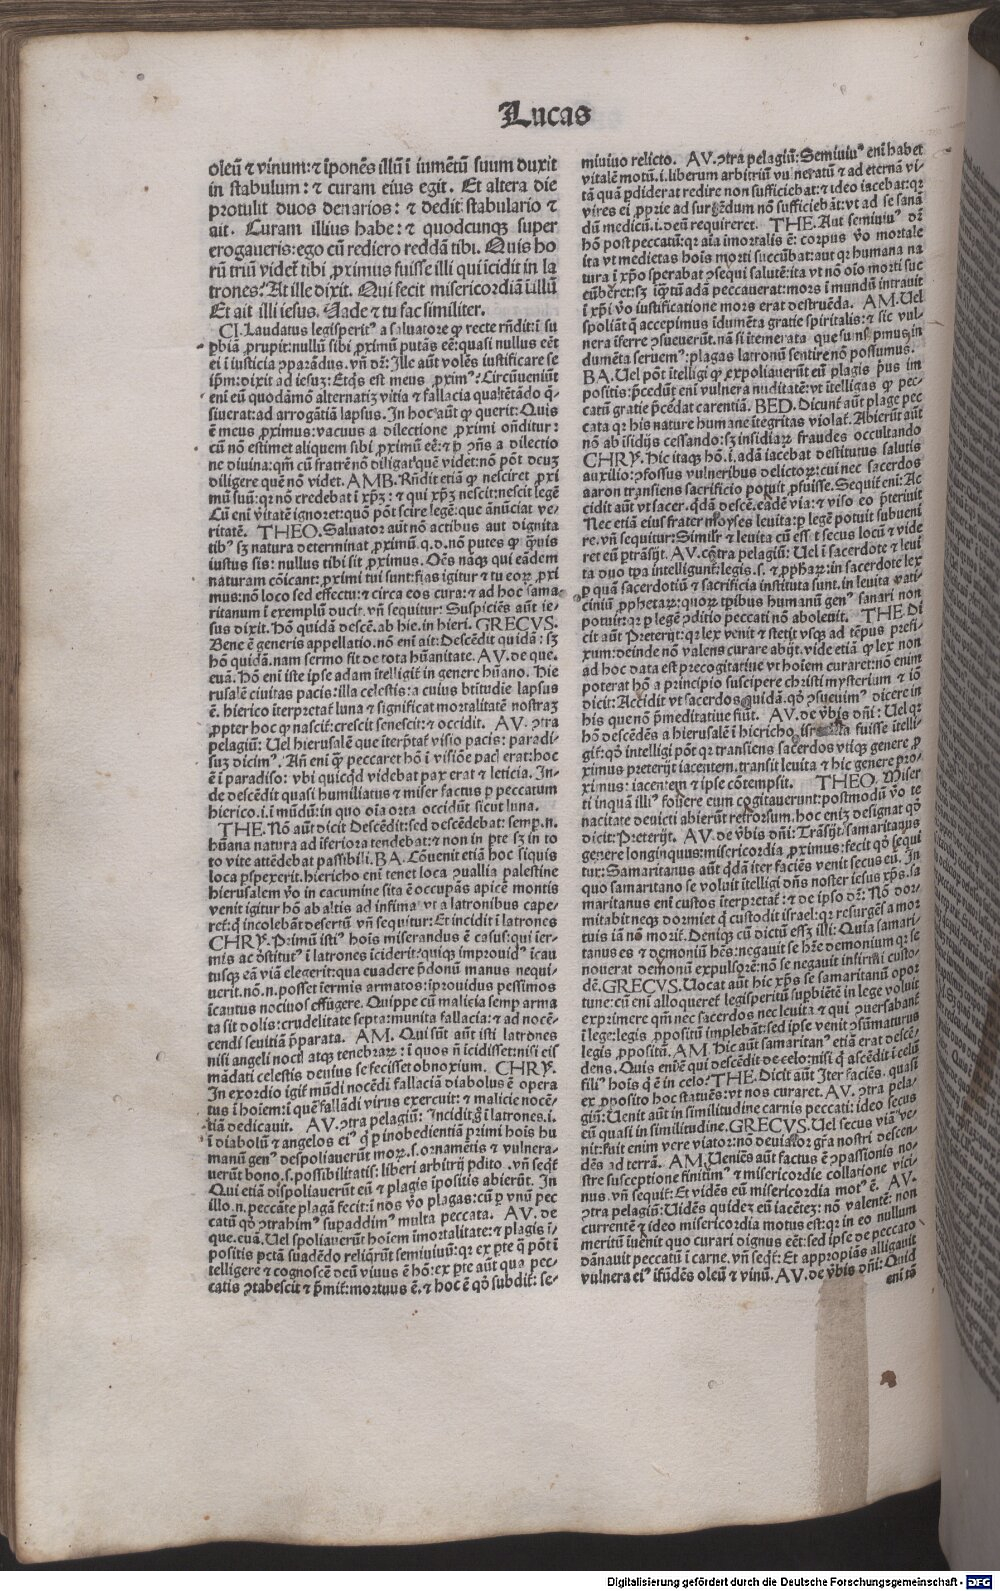 Lucas
oleū ⁊ vinum:⁊ īponēs illū ī iumētū suum duxit
in stabulum: ⁊ curam eius egit. Et altera die
protulit duos denarios: ⁊ dedit stabulario ⁊
ait. Curam illius habe: ⁊ quodcunqꝫ super
erogaueris:ego cū rediero reddā tibi. Quis ho
rū triū videt̄ tibi ꝓximus fuisse illi qui īcidit in la
trones? At ille dixit. Qui fecit misericordiā ī illū
Et ait illi iesus. Uade ⁊ tu fac similiter.
CI. Laudatus legisperitꝰ a saluatore ꝙ recte rn̄dit:ī su
ꝑbiā ꝓrupit:nullū sibi ꝓximū putās eē:quasi nullus eēt
ei ī iusticia ꝯparādus. vn̄ dr̄: Ille aūt volēs iustificare se
ip̄m:dixit ad iesuꝫ: Etq̄s est meus ꝓximꝰ? Circūueniūt
eni eū quodāmō alternatiꝫ vitia ⁊ fallacia qua tētādo q̄-
siuerat:ad arrogātiā lapsus. In hoc aūt ꝙ querit: Quis
ē meus ꝓximus:vacuus a dilectione ꝓximi on̄ditur:
cū nō estimet aliquem sibi ꝓximū eē:⁊ ꝑ ꝯn̄s a dilectio
ne diuina:qm̄ cū fratrē nō diligat quē videt:nō pōt deuꝫ
diligere quē nō videt. AMB. Rn̄dit etiā ꝙ nesciret ꝓxi
mū suū:qr nō credebat ī xp̄ꝫ: ⁊ qui xp̄ꝫ nescit:nescit legē
Cū eni v̄itatē ignoret:quō pōt scire legē:que ānūciat ve-
ritatē. THEO. Saluator aūt nō actibus aut dignita
tibꝰ sꝫ natura determinat ꝓximū.q.d.nō putes ꝙ q̄uis
iustus sis: nullus tibi sit ꝓximus. Oēs nāqꝫ qui eādem
naturam cōicant:ꝓximi tui sunt:fias igitur ⁊ tu eoꝝ ꝓxi
mus:nō loco sed effectu:⁊ circa eos cura:⁊ ad hoc sama
ritanum ī exemplū ducit. vn̄ sequitur: Suspiciēs aūt ie-
sus dixit. Hō quidā descē.ab hie.in hieri. GRECVS.
Bene ē generis appellatio.nō eni ait: Descēdit quidā: sꝫ
hō quidā.nam sermo fit de tota hūanitate. AV. de que.
euā. Hō eni iste ipse adam ītelligit̄ in genere hūano. Hie
rusalē ciuitas pacis:illa celestis:a cuius btitudie lapsus
ē. hierico īterpretat̄ luna ⁊ significat mortalitatē nostraꝫ
ꝓpter hoc ꝙ nascit̄:crescit senescit:⁊ occidit. AV. ꝯtra
pelagiū: Uel hierusalē que īterp̄tat̄ visio pacis: paradi-
suꝫ dicimꝰ. An̄ eni ꝙ peccaret hō ī visiōe pacꝭ erat:hoc
ē ī paradiso: vbi quicqd̄ videbat pax erat ⁊ leticia. In-
de descēdit quasi humiliatus ⁊ miser factus ꝑ peccatum
hierico.i.ī mūdū:in quo oīa orta occidūt sicut luna.
THE. Nō aūt dicit Descēdit:sed descēdebat: semꝑ.n.
hūana natura ad īferiora tendebat:⁊ non in pte sꝫ in to
to vite attēdebat passibili. BA. Cōuenit etiā hoc siquis
loca ꝑspexerit.hiericho eni tenet loca ꝯuallia palestine
hierusalem v̄o in cacumine sita ē occupās apicē montis
venit igitur hō ab altis ad infima vt a latronibus cape-
ret̄:q̄ incolebāt desertū vn̄ sequitur: Et incidit ī latrones
CHRY. Primū istiꝰ hoīs miserandus ē casus:qui īer-
mis ac d̄stitutꝰ ī latrones īciderit:quiqꝫ improuidꝰ īcau
tusqꝫ eā viā elegerit:qua euadere p̄donū manus nequi-
uerit.nō.n.posset īermis armatos:īprouidus pessimos
īcautus nociuos effugere. Quippe cū malicia semꝑ arma
ta sit dolis:crudelitate septa:munita fallacia:⁊ ad nocē-
cendi seuitiā p̄parata. AM. Qui sūt aūt isti latrones
nisi angeli noctꝭ atqꝫ tenebraꝝ: ī quos n̄ īcidisset:nisi eis
mādati celestis deuius se fecisset obnoxium. CHRY.
In exordio igit̄ mūdi nocēdi fallaciā diabolus ē opera
tus ī hoīem:ī quē fallādi virus exercuit: ⁊ malicie nocē-
tiā dedicauit. AV. ꝯtra pelagiū: Incidit ḡ ī latrones.i.
ī diabolū ⁊ angelos eiꝰ q̄ ꝑ inobedientiā primi hoīs hu
manū genꝰ despoliauerūt moꝝ.s.ornamētis ⁊ vulnera-
uerūt bono.s.possibilitatis: liberi arbitrij pdito. vn̄ seqt̄
Qui etiā dispoliauerūt eū ⁊ plagis īpositis abierūt. In
illo.n.peccāte plagā fecit:ī nos v̄o plagas:cū ꝑ vnū pec
catū qd̄ ꝯtrahimꝰ supaddimꝰ multa peccata. AV. de
que.euā. Uel spoliauerūt hoīem īmortalitate:⁊ plagis ī-
positis pctā suadēdo reliq̄rūt semiuiuū:qr ex pte q̄ pōt ī
telligere ⁊ cognoscē deū viuus ē hō:ex pte aūt qua pec-
catis ꝯtabescit ⁊ p̄mit̄:mortuus ē.⁊ hoc ē qd̄ subdit̄: se-
miuiuo relicto. AV. ꝯtra pelagiū: Semiuiuꝰ eni habet
vitalē motū.i.liberum arbitriū vulneratū ⁊ ad eternā vi-
tā quā ꝑdiderat redire non sufficiebat:⁊ ideo iacebat:qr
vires ei ꝓprie ad surgēdum nō sufficiebāt:vt ad se sanā
dū medicū.i.deū requireret. THE. Aut semiuiuꝰ dr̄
hō post peccatū:qr aīa īmortalis ē: corpus v̄o mortale
ita vt medietas hoīs morti succūbat:aut qr humana na
tura ī xp̄o sperabat ꝯsequi salutē:ita vt nō oīo morti suc
cūberet:sꝫ īq̄tū adā peccauerat:mors ī mundū intrauit
ī xp̄i v̄o iustificatione mors erat destruēda. AM. Uel
spoliāt q̄ accepimus īdumēta gratie spiritalis:⁊ sic vul-
nera īferre ꝯsueuerūt.nā si ītemerata que sumpsimus in
dumēta seruemꝰ:plagas latronū sentire nō possumus.
BA. Uel pōt ītelligi ꝙ expoliauerūt eū plagis p̄us im
positis:p̄cedūt eni vulnera nuditatē:vt ītelligas ꝙ pec-
catū gratie p̄cedat carentiā. BED. Dicunt̄ aūt plage pec
cata qr his nature humane ītegritas violat̄. Abierūt aūt
nō ab īsidijs cessando:sꝫ insidiaꝝ fraudes occultando
CHRY. Hic itaqꝫ hō.i.adā iacebat destitutus salutis
auxilio:ꝯfossus vulneribus delictoꝝ:cui nec sacerdos
aaron transiens sacrificio potuit ꝓfuisse. Sequit̄ eni: Ac
cidit aūt vt sacer.q̄dā descē.eadē via:⁊ viso eo p̄teriuit
Nec etiā eius frater moyses leuita:ꝑ legē potuit subueni
re.vn̄ sequitur: Simil̄r ⁊ leuita cū eēt secus locū ⁊ vide
ret eū ꝑtrāsijt. AV. cōtra pelagiū: Uel ī sacerdote ⁊ leui
ta duo tpa intelligunt̄:legis.s. ⁊ ꝓphaꝝ:in sacerdote lex
ꝑ quā sacerdotiū ⁊ sacrificia instituta sunt.in leuita vati-
ciniū ꝓphetaꝝ:quoꝝ tpibus humanū genꝰ sanari non
potuit:qr ꝑ legē ꝯditio peccati nō aboleuit. THE. Di
cit aūt Preterijt:qr lex venit ⁊ stetit vsqꝫ ad tēpus prefi-
xum:deinde nō valens curare abijt.vide etiā ꝙ lex non
ad hoc data est precogitatiue vt hoīem curaret:nō enim
poterat hō a principio suscipere christi mysterium ⁊ iō
dicit: Accidit vt sacerdos quidā.qd̄ ꝯsueuimꝰ dicere in
his que nō p̄meditatiue fiūt. AV. de v̄bis dn̄i: Uel qr
hō descēdēs a hierusalē ī hiericho fuisse ītelli-
git̄:qd̄ intelligi pōt qr transiens sacerdos vtiqꝫ genere ꝓ
ximus preterijt iacentem.transit leuita ⁊ hic genere pro-
ximus: iacentem ⁊ ipse cōtempsit. THEO. Miser
ti inquā illiꝰ fouere eum cogitauerunt:postmodū v̄o te
nacitate deuicti abierūt retrorsum.hoc eniꝫ designat qd̄
dicit: Preterijt. AV. de v̄bis dn̄i: Trāsijt samaritanus
genere longinquus:misericordia ꝓximus:fecit qd̄ sequi
tur: Samaritanus aūt q̄dā iter faciēs venit secus eū. In
quo samaritano se voluit ītelligi dn̄s noster iesus xp̄s.sa
maritanus eni custos īterpretat̄: ⁊ de ipso dr̄: Nō dor-
mitabit neqꝫ dormiet q̄ custodit israel:qr resurgēs a mor
tuis iā nō morit̄. Deniqꝫ cū dictū essꝫ illi: Quia samari-
tanus es ⁊ demoniū hēs:negauit se hr̄e demonium qr se
nouerat demonū expulsorē:nō se negauit infirmi custo-
dē. GRECVS. Uocat aūt hic xp̄s se samaritanū opor
tune:cū eni alloqueret̄ legisperitū supbiētē in lege voluit
exprimere qm̄ nec sacerdos nec leuita ⁊ qui ꝯuersabant̄
ī lege:legis ꝓpositū implebāt:sed ipse venit ꝯsūmaturus
legis ꝓpositū. AM. Hic aūt samaritanꝰ etiā erat descē-
dens. Quis eni ē qui descēdit de celo:nisi q̄ ascēdit ī celū
filiꝰ hoīs q̄ ē in celo? THE. Dicit aūt Iter faciēs. quasi
ex ꝓposito hoc statuēs:vt nos curaret. AV. ꝯtra pela-
giū: Uenit aūt in similitudine carnis peccati: ideo secus
eū quasi in similitudine. GRECVS. Uel secus viā ve-
nit:fuit enim vere viator:nō deuiator gr̄a nostri descen-
dēs ad terrā. AM. Ueniēs aūt factus ē ꝯpassionis no-
stre susceptione finitimꝰ ⁊ misericordie collatione vici-
nus.vn̄ sequit̄: Et vidēs eū misericordia motꝰ ē. AV.
ꝯtra pelagiū: Uidēs quideꝫ eū iacēteꝫ: nō valentē: non
currentē ⁊ ideo misericordia motus est:qr in eo nullum
meritū īuenit quo curari dignus eēt:sed ipse de peccato
dānauit peccatū ī carne.vn̄ seqt̄: Et appropiās alligauit
vulnera eiꝰ īfūdēs oleū ⁊ vinū. AV. de v̄bis dn̄i: Quid
eni tā
Digitalisierung gefördert durch die Deutsche Forschungsgemeinschaft - DFG